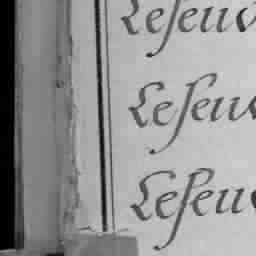 Leſeuv
Leſeuv
Leſeuv